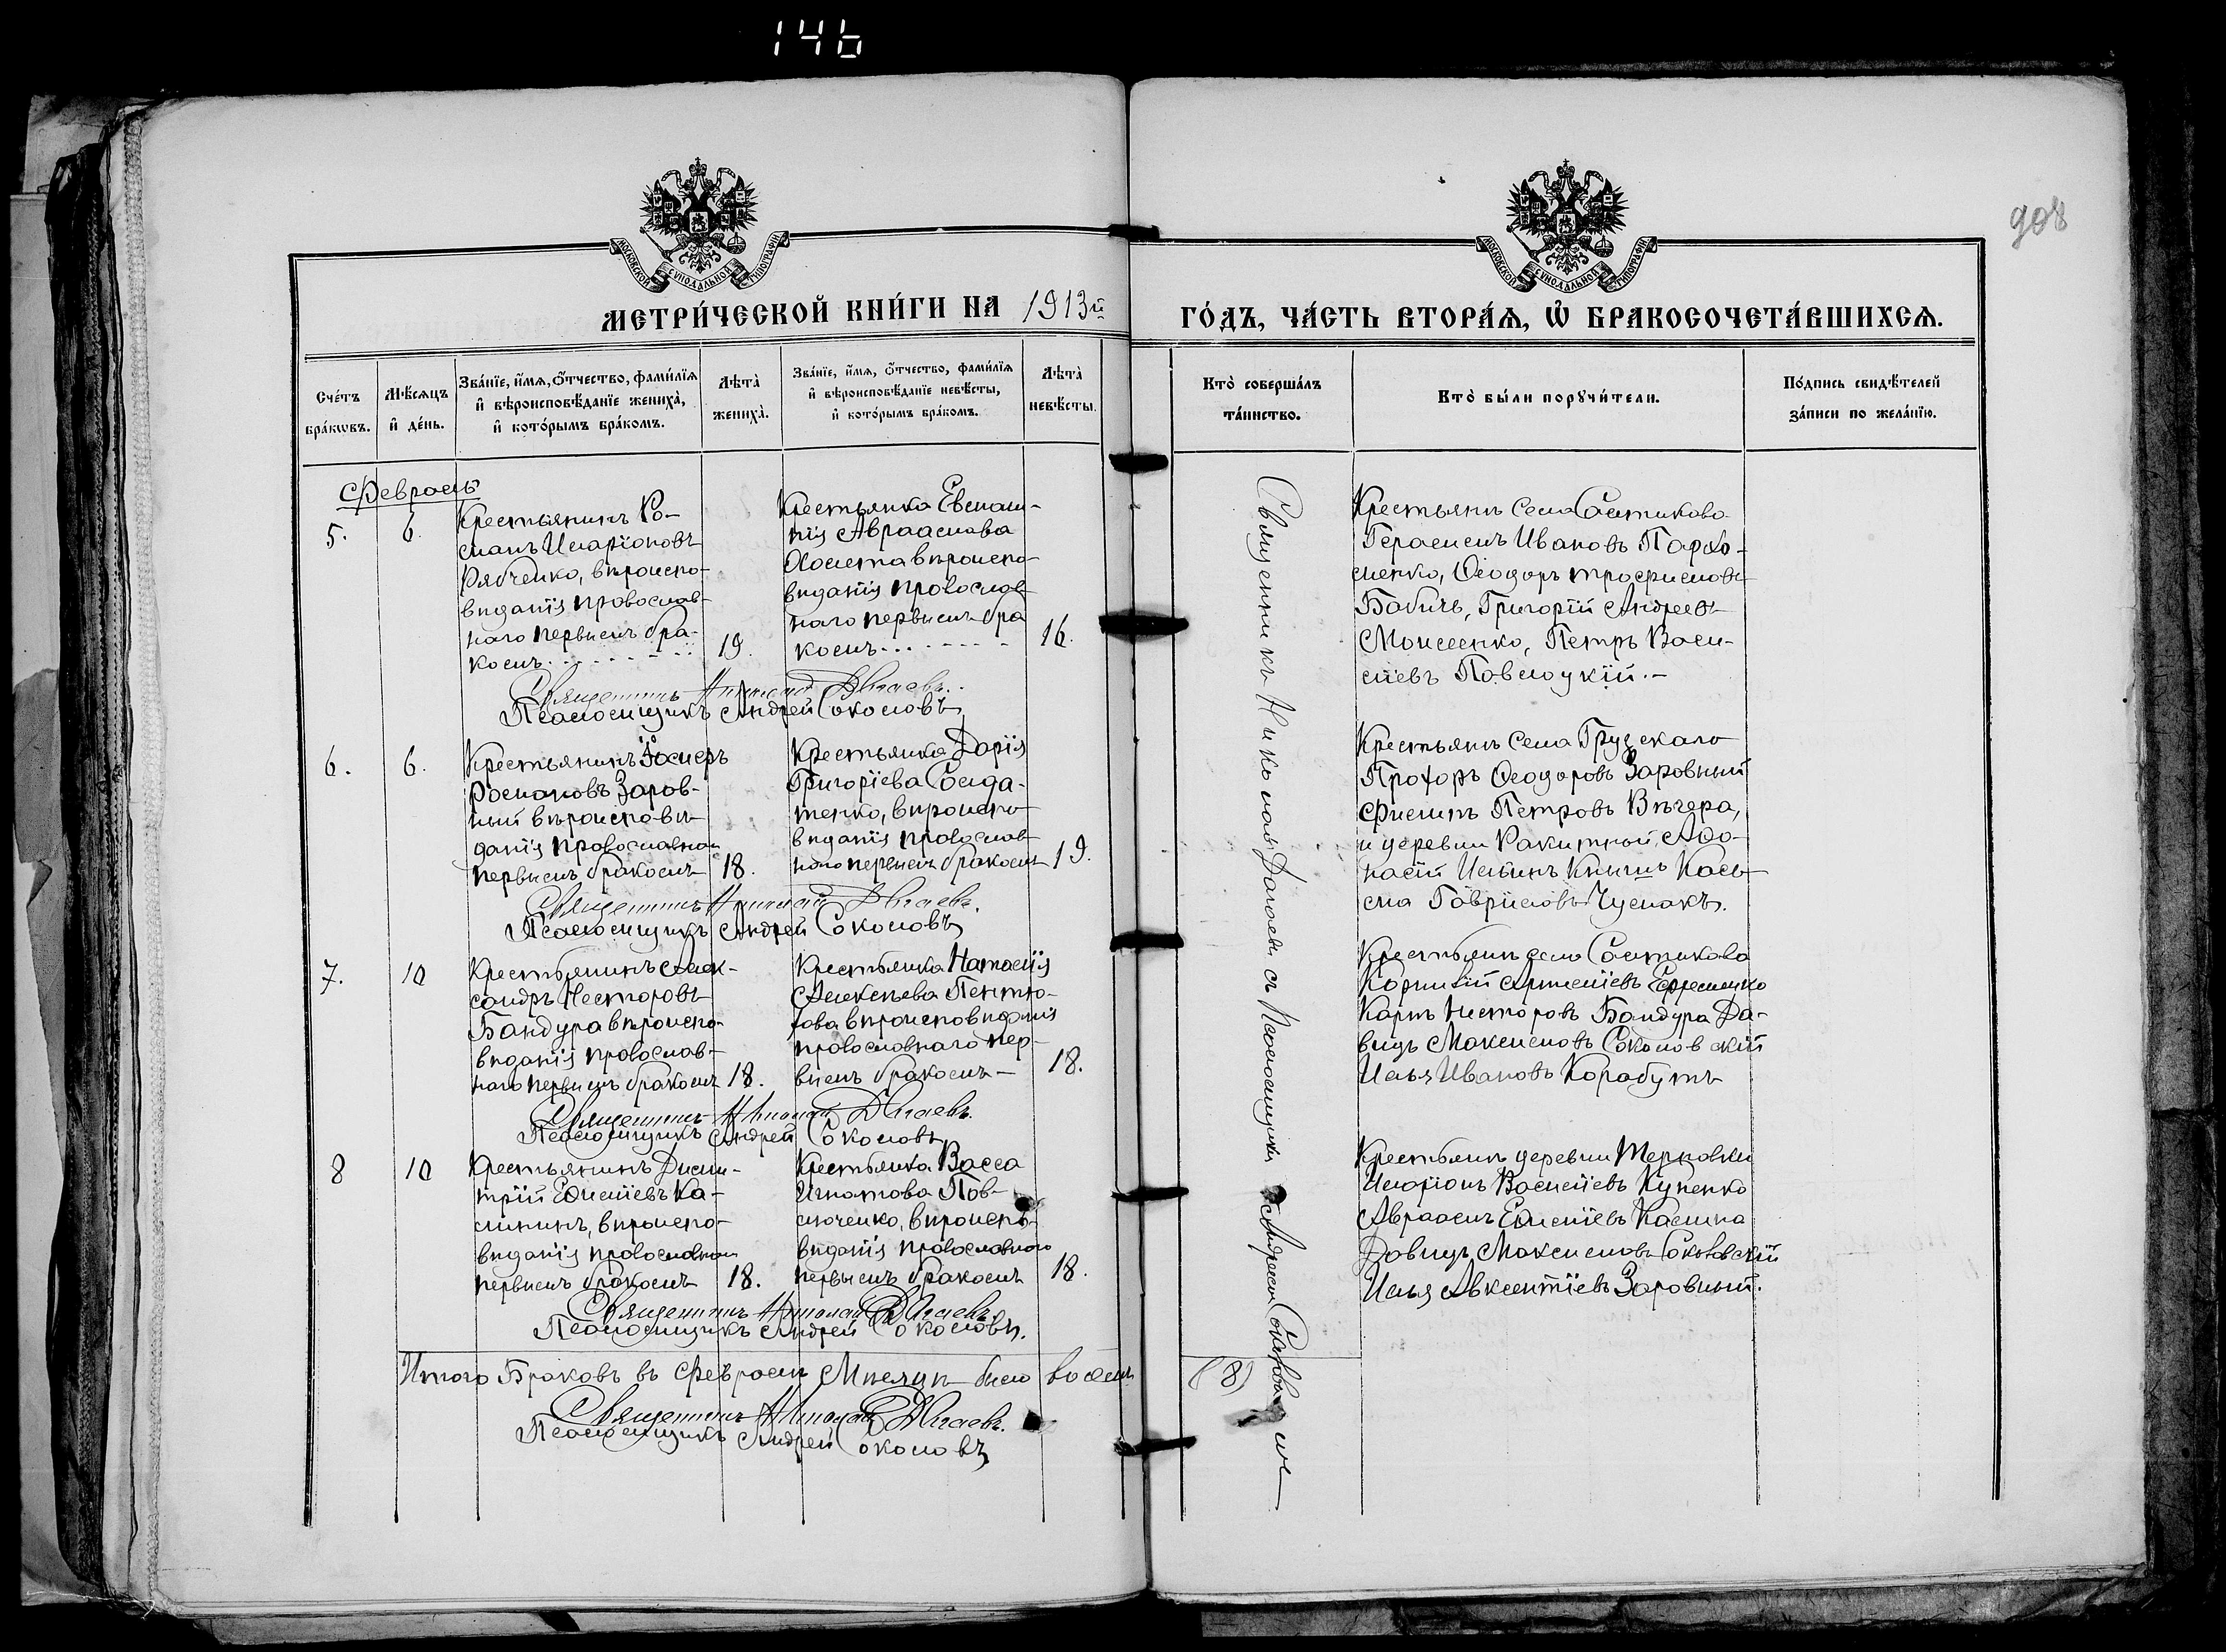 146
908
МОСКОВСКОЙ СѴНОДАЛЬНОЙ ТИПОГРАФІИ
МОСКОВСКОЙ СѴНОДАЛЬНОЙ ТИПОГРАФІИ
МЕТРИ́ЧЕСКОЙ КНИ́ГИ НА 1913й
ГО́ДЪ, ЧА́СТЬ ВТОРА́Ѧ, Ѡ҆ БРАКОСОЧЕТА́ВШИХСѦ.
Сче́тъ бра́кѡвъ.
Мѣ́сѧцъ и҆ де́нь.
Зва́нїе, и҆́мѧ, ѻ҆́тчество, фами́лїѧ и҆ вѣроисповѣ́данїе жениха̀, и҆ кото́рымъ бра́комъ.
Лѣта̀ жениха̀.
Зва́нїе, и҆́мѧ, ѻ҆́тчество, фами́лїѧ и҆ вѣроисповѣ́данїе невѣ́сты, и҆ кото́рымъ бра́комъ.
Лѣта̀ невѣ́сты.
Кто̀ соверша́лъ та́инство.
Кто̀ бы́ли порꙋчи́тели.
По́дпись свидѣ́телей за́писи по жела́нїю.
Февраль
5.
6.
Крестьянинъ Ро-
манъ Иларіоновъ
Рябченко, вѣроиспо-
вѣданія православ-
наго первымъ бра-
комъ
19.
Крестьянка Евлам-
пія Авраамова
Хомета вѣроиспо-
вѣданія православ-
наго первымъ бра
комъ
16.
Крестьяне села
Герасимъ Ивановъ Пархо-
менко, Ѳеодоръ Трофимовъ
Бабичъ, Григорій Андреевъ
Моисеенко, Петръ Васи-
ліевъ Павлоцкій.-
Священникъ Николай Дагаевъ.
Псаломщикъ Андрей Соколовъ
6.
6.
Крестьянинъ
Романовъ Заров-
ный вѣроисповѣ-
данія православнаго
первымъ бракомъ
18.
Крестьянка Дарія
Григоріева Солда-
тенко, вѣроиспо-
вѣданія православ-
наго первымъ бракомъ
19.
Крестьяне села Грузскаго
Прохоръ Ѳеодоровъ Заровный
Филипъ Петровъ Вечера,
и деревни Ракитной Аѳа-
насій Ильинъ Книшъ Козь-
ма Гавриловъ Чумакъ.
Священникъ Николай Дагаевъ.
Псаломщикъ Андрей Соколовъ
7.
10
Крестьянинъ Алек-
сандръ Несторовъ
Бандура вѣроиспо-
вѣданія православ-
наго первымъ бракомъ
18.
Крестьянка Наталія
Алексѣева Пентю-
хова вѣроисповѣданія
православнаго пер-
вымъ бракомъ-
18.
Крестьяне села
Корнилій Артеміевъ Ефременко
Карпъ Несторовъ Бандура Да-
видъ Максимовъ Соколовскій
Илья Ивановъ Корабутъ
Священникъ Николай Дагаевъ.
Псаломщикъ Андрей Соколовъ
8
10
Крестьянинъ Дими-
трій Елисіевъ Ка-
лининъ, вѣроиспо-
вѣданія православнаго
первымъ бракомъ
18.
Крестьянка Васса
Игнатова Пав-
люченко, вѣроиспо-
вѣданія православнаго
первымъ бракомъ
18.
Крестьяне деревни Терновки
Иларіонъ Василіевъ Купенко
Авраамъ Елисіевъ Калина
Давидъ Максимовъ Соколовскій
Илья Авксентіевъ Заровный.
Священникъ Николай Дагаевъ.
Псаломщикъ Андрей Соколовъ.
Итого Браковъ въ Февралѣ Мѣсяцѣ было восемь (8)
Священникъ Николай Дагаевъ.
Псаломщикъ Андрей Соколовъ
Священникъ Николай Дагаевъ съ Псаломщикомъ Андреемъ Соколовымъ